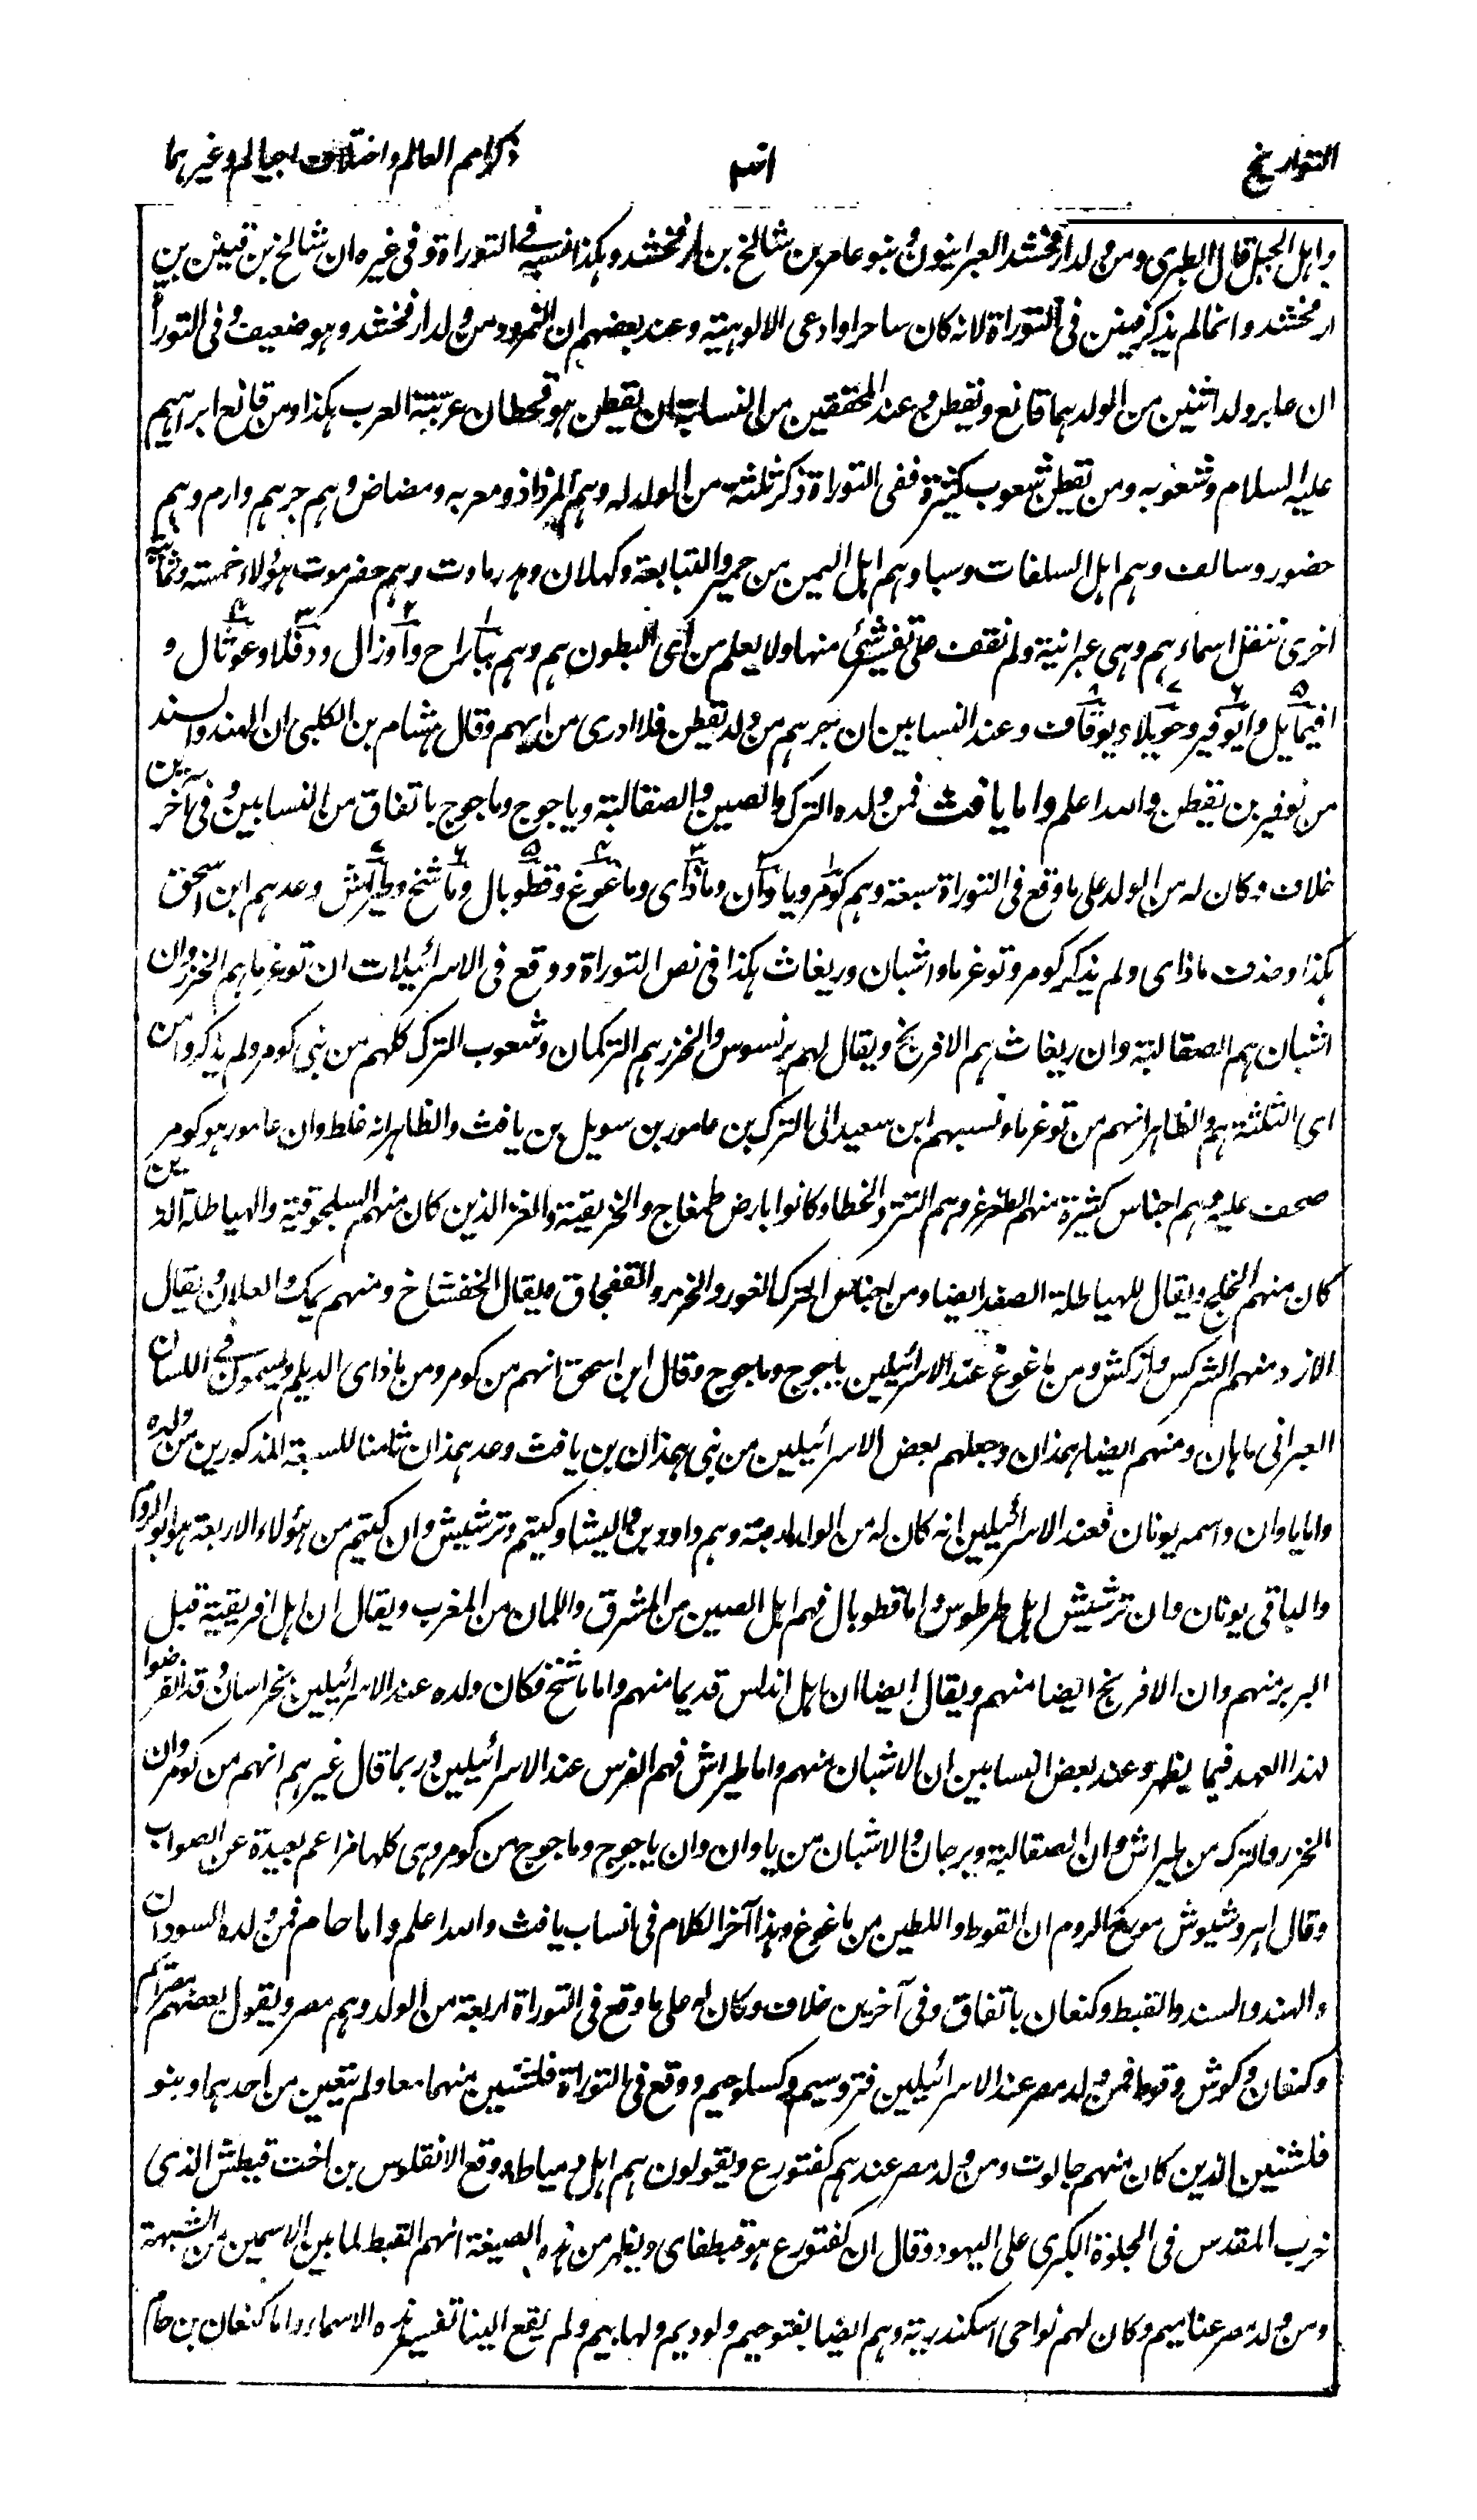 التواريخ
ذكر امم العالم واختلاف اجيالهم وغيرهما
واهل الجبل قال الطبري ومن ولد ارفخشد العبرانيون وبنو عامر بن شالخ بن ارفخشد وهكذا نسبه في التوراة وفي غيره ان شالخ بن قينن بن
ارفخشد وانما لم يذكر قينن في التوراة لانه كان ساحرا وادعى الالوهية وعند بعضهم ان النمرود من ولد ارفخشد وهو ضعيف وفي التوراة
ان عابر ولد اثنين من الولد هما قانع ويقطن وعند المحققين من النسابة ان يقطن هو قحطان عربته العرب هكذا ومن قانع ابراهيم
عليه السلام وشعوبه ومن يقطن شعوب كثيرة ففي التوراة ذكر ثلثة من الولد له وهم المرذاذ ومعربه ومضاض وهم جرهم وارم وهم
حضور وسالف وهم اهل السلفات وسبا وهم اهل اليمن من حمير والتبابعة وكهلان وهدرماوت وهم حضرموت هؤلاء خمسة وثمانية
اخرى ننقل اسماءهم وهي عبرانية ولم نقف على تفسير شئ منها ولا يعلم من اي البطون هم وهم يباراح واوزال ودقلا وعوثال و
افيمايل وايوفير وحويلا ويوفاف وعند النسابين ان جرهم من ولد يقطن فلا ادري من ايهم وقال هشام بن الكلبي ان الهند والسند
من نوفير بن يقطن والله اعلم واما يافث فمن ولده الترك والصين والصقالبة وياجوج وماجوج باتفاق من النسابين وفي آخرين
خلاف وكان له من الولد على ما وقع في التوراة سبعة وهم كومر وياوان وماذاي وماغوغ وقطوبال وماشخ وطيراش وعدهم ابن اسحق
هكذا وحذف ماذاي ولم يذكر كومر وتوغرما واشبان وريغاث هكذا في نص التوراة ووقع في الاسرائيلات ان توغرما هم الخزر وان
اشبان هم الصقالبة وان ريغاث هم الافرنج ويقال لهم برنسوس والخزر هم التركمان وشعوب الترك كلهم من بني كومر ولم يذكروا من
اي الثلثة هم والظاهر انهم من توغرما ونسبهم ابن سعيد الى الترك بن عامور بن سويل بن يافث والظاهر انه غلط وان عامور هو كومر
صحف عليه وهم اجناس كثيرة منهم الطغرغر وهم التتر والخطا وكانوا بارض طمغاج والخزيقية والغز الذين كان منهم السلجوقية والهياطلة الذين
كان منهم الخلج ويقال للهياطلة الصغد ايضا ومن اجناس الترك الغور والخزر والقفجاق ويقال الخفشاخ ومنهم يمك والعلان ويقال
الاز ومنهم الشركس وازكش ومن ماغوغ عند الاسرائيلين ياجوج وماجوج وقال ابن اسحق انهم من كومر ومن ماذاي الديلم ويسمون في اللسان
العبراني ماهان ومنهم ايضا همذان وجعلهم بعض الاسرائيلين من بني همذان بن يافث وعد همذان ثامنا للسبعة المذكورين من ولده
واما ياوان واسمه يونان فعند الاسرائيلين انه كان له من الولد اربعة وهم داودين واليشا وكيتم وترشيش وان كيتم من هؤلاء الاربعة هو ابو الروم
والباقي يونان وان ترشيش اهل طرطوس واما قطوبال فهم اهل الصين من المشرق واللمان من المغرب ويقال ان اهل افريقية قبل
البربر منهم وان الافرنج ايضا منهم ويقال ايضا ان اهل اندلس قديما منهم واما ماشخ فكان ولده عند الاسرائيلين بخراسان وقد انقرضوا
لهذا العهد فيما يظهر وعند بعض النسابين ان الاشبان منهم واما طيراش فهم الفرس عند الاسرائيلين وربما قال غيرهم انهم من كومر وان
الخزر والترك من طيراش وان الصقالبة وبرجان والاشبان من ياوان وان ياجوج وماجوج من كومر وهي كلها مزاعم بعيدة عن الصواب
وقال اهروشيوش مورخ الروم ان القوط واللطين من ماغوغ وهذا آخر الكلام في انساب يافث والله اعلم واما حام فمن ولده السودان
والهند والسند والقبط وكنعان باتفاق وفي آخرين خلاف وكان له على ما وقع في التوراة اربعة من الولد وهم مصر ويقول بعضهم مصرايم
وكنعان وكوش وقوط فمن ولد مصر عند الاسرائيلين فتروسيم وكسلوحيم ووقع في التوراة فلشنين منهما معا ولم يتعين من احدهما وبنو
فلشنين الذين كان منهم جالوت ومن ولد مصر عندهم كفتورع ويقولون هم اهل دمياط ووقع الانقلوس بن اخت قيطش الذي
خرب المقدس في الجلوة الكبرى على اليهود وقال ان كفتورع هو قبطقاي ويظهر من هذه الصيغة انهم القبط لما بين الاسمين من الشبهة
ومن ولد مصر عناميم وكان لهم نواحي اسكندرية وهم ايضا بفتوحيم ولوديم ولهابيم ولم يقع الينا تفسير هذه الاسماء واما كنعان بن حام